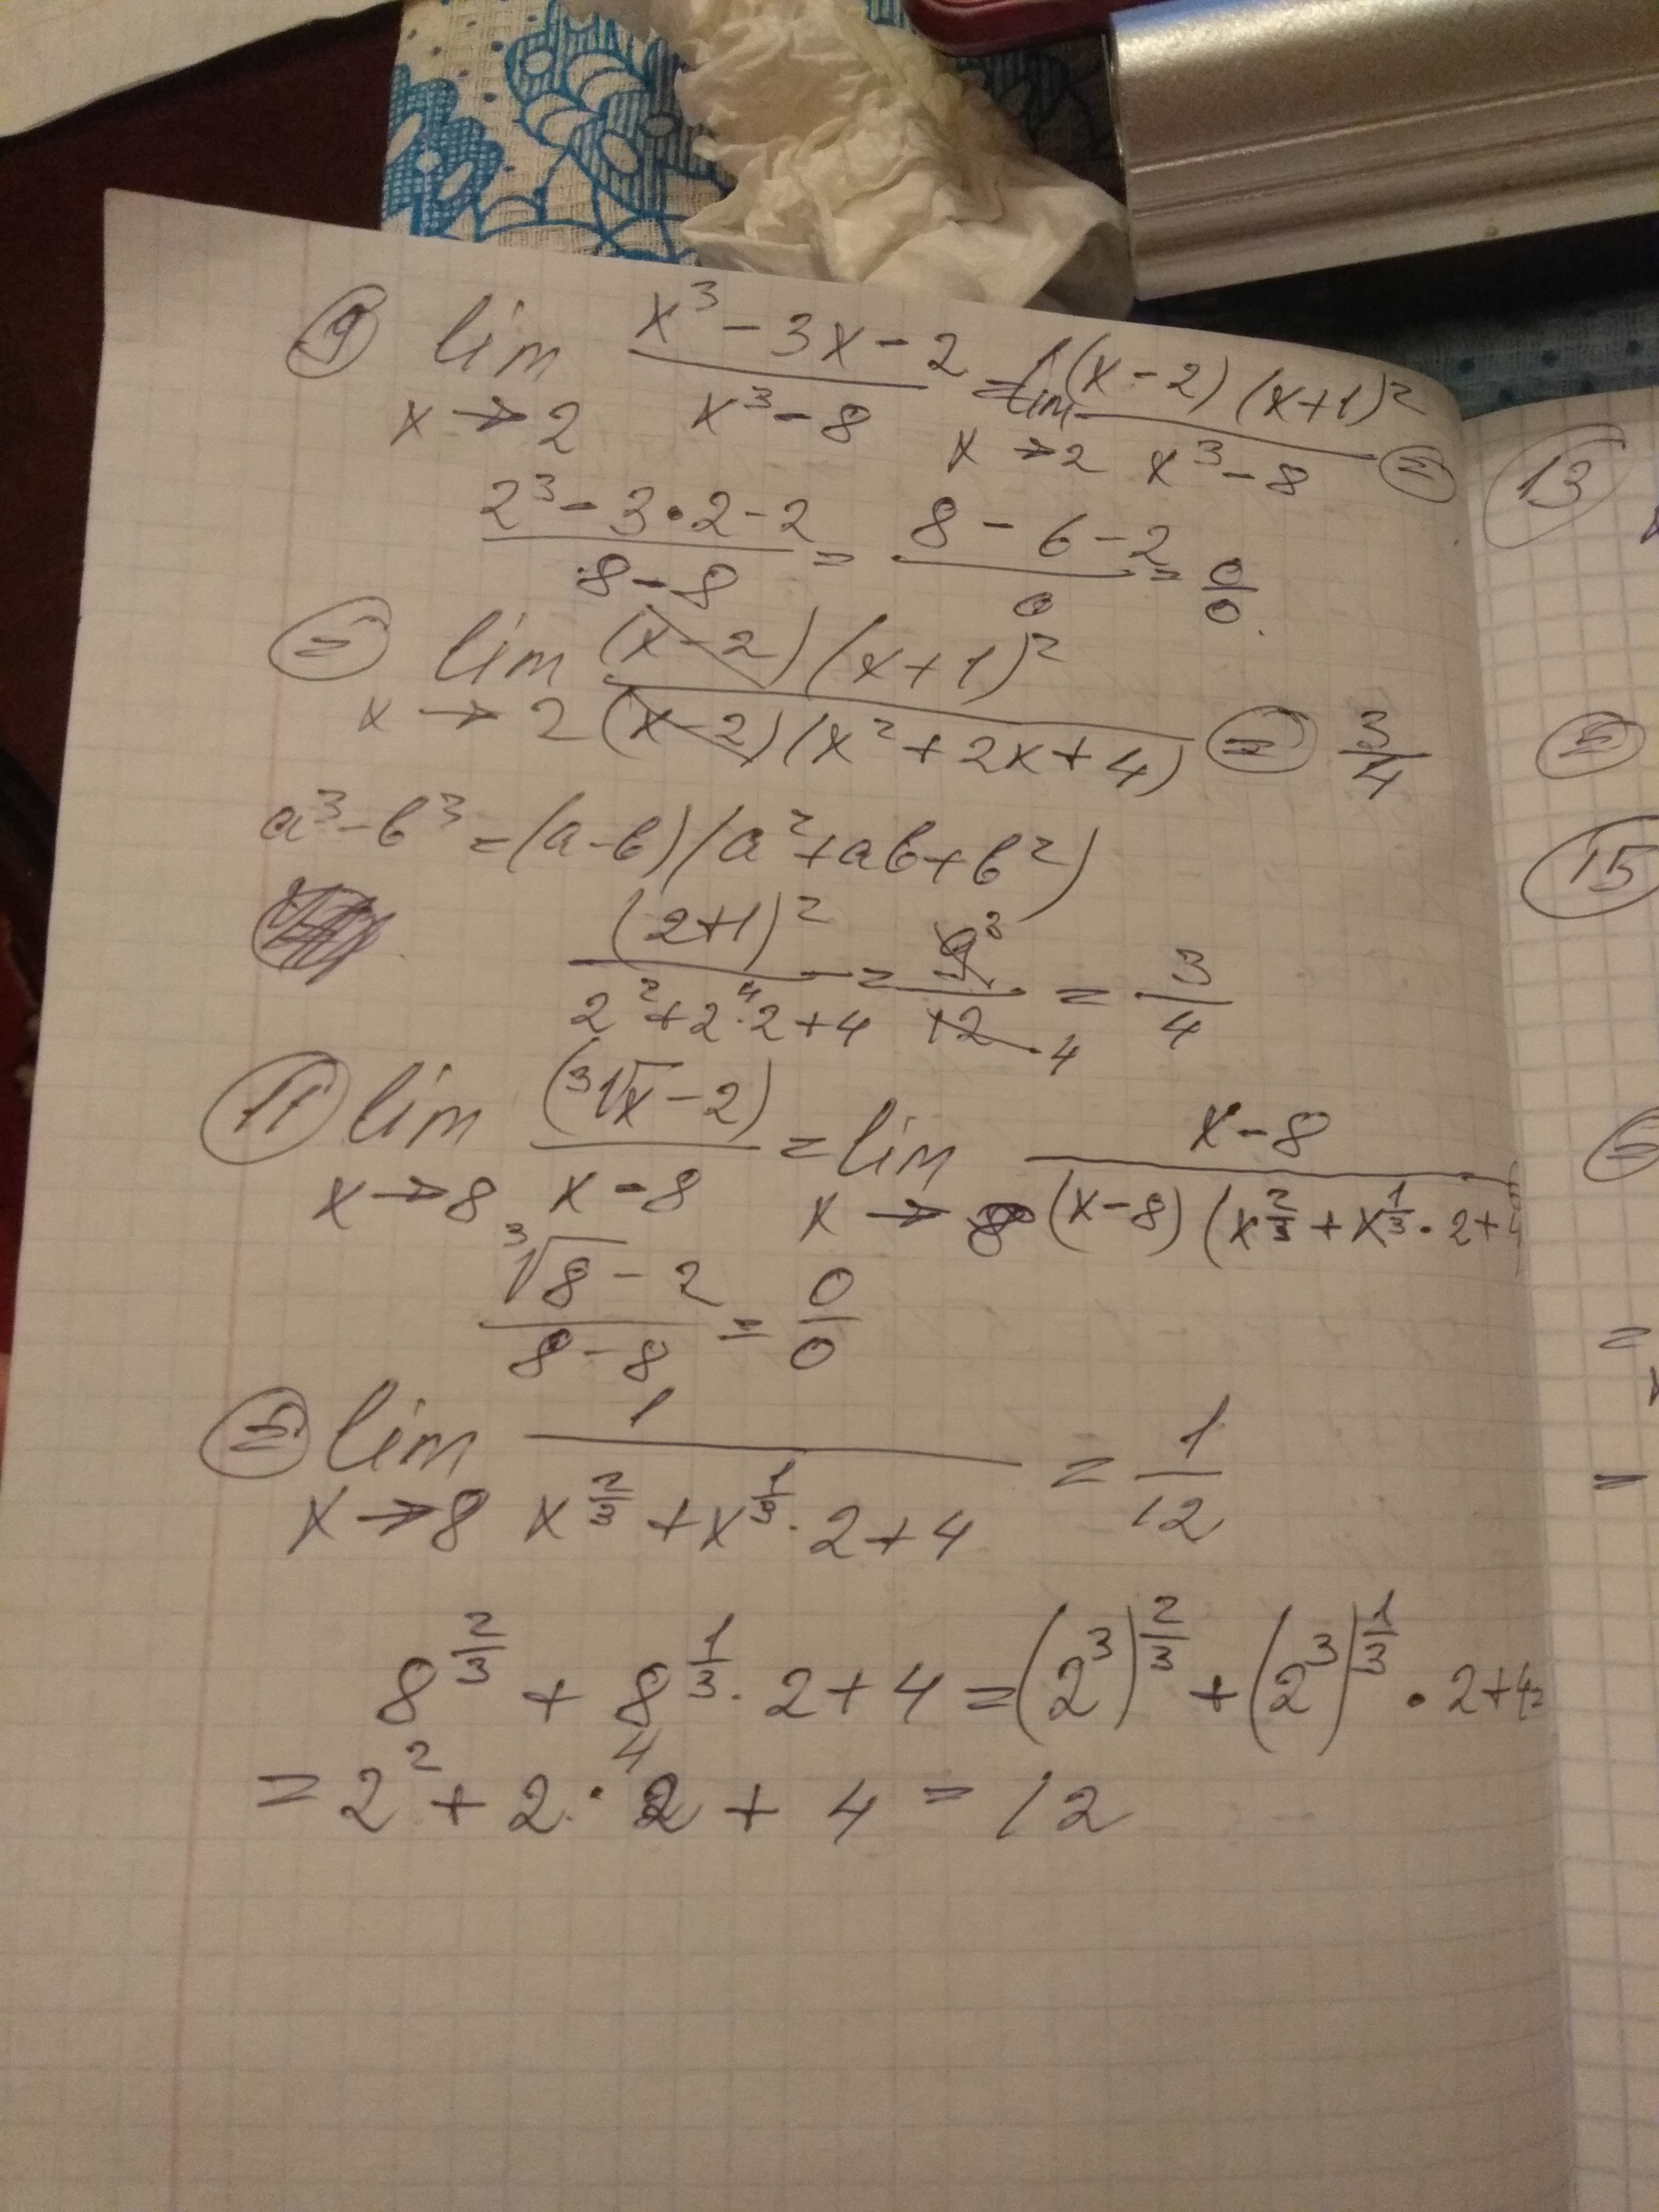 ⑨ lim x³-3x-2 / x³-8 = lim (x-2)(x+1)² / x³-8 ⊜
x→2 x→2
2³-3·2-2 / 8-8 = 8-6-2 / 0 = 0/0.
⊜ lim (x-2)(x+1)² / (x-2)(x²+2x+4) ⊜ 3/4
x→2
a³-b³=(a-b)(a²+ab+b²)
(2+1)² / 2²+2·2+4 = 9 / 12 = 3/4
4 3 4
⑪ lim (³√x-2) / x-8 = lim x-8 / (x-8)(x^(2/3)+x^(1/3)·2+4
x→8 x→8
³√8-2 / 8-8 = 0/0
⊜ lim 1 / x^(2/3)+x^(1/3)·2+4 = 1/12
x→8
8^(2/3)+8^(1/3)·2+4=(2³)^(2/3)+(2³)^(1/3)·2+4=
4
=2²+2·2+4=12
⑬
⊜
⑮
=
=